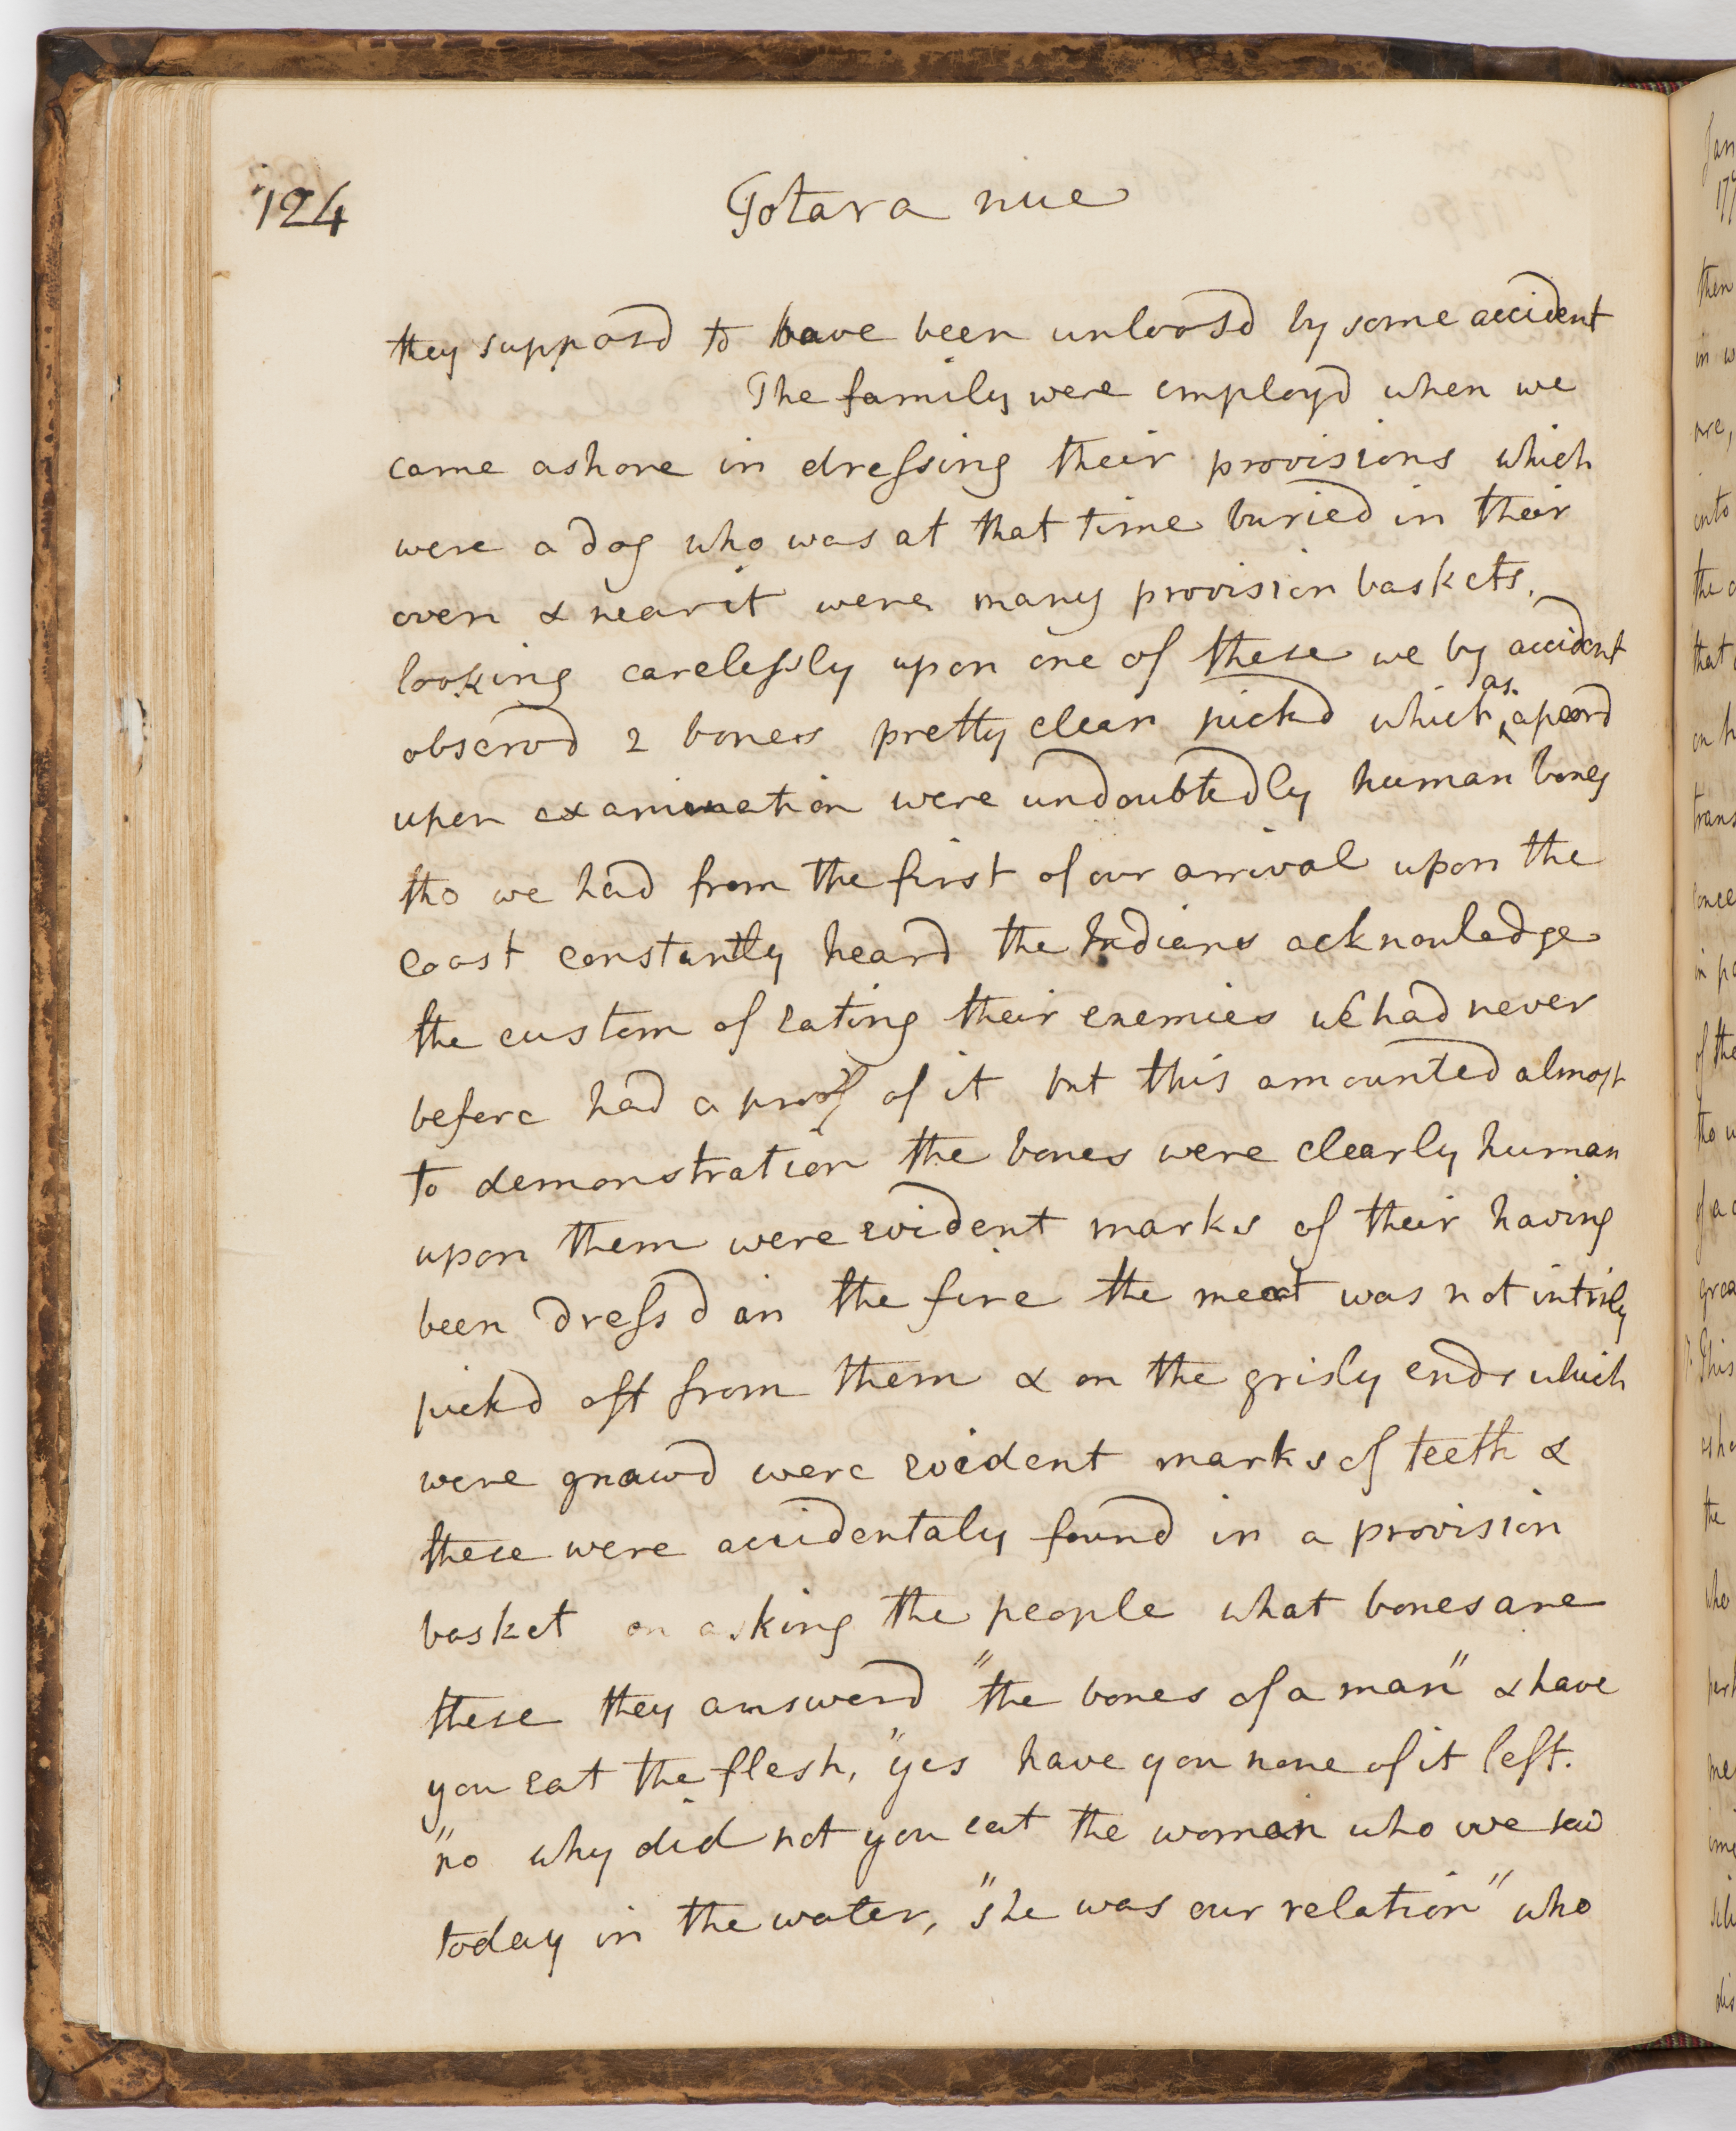 124
Totara nue
they supposd to have been unloosd by some accident
The family were employd when we
came ashore in dressing their provisions which
were a dog who was at that time buried in their
oven & near it were many provision baskets.
looking carelessly upon one of these we by accident
observd 2 bones pretty clean pickd which as apeard
upon examination were undoubtedly human bones
tho we had from the first of our arrival upon the
coast constantly heard the Indians acknowledge
the custom of eating their enemies we had never
before had a proof of it but this amounted almost
to demonstration the bones were clearly human
upon them were evident marks of their having
been dressd on the fire the meat was not intirely
pickd off from them & on the grisly ends which
were gnawd were evident marks of teeth &
these were accidentaly found in a provision
basket on asking the people what bones are
these they answerd "the bones of a man" & have
you eat the flesh, "yes have you none of it left.
"no why did not you eat the woman who we saw
today in the water, "she was our relation" who